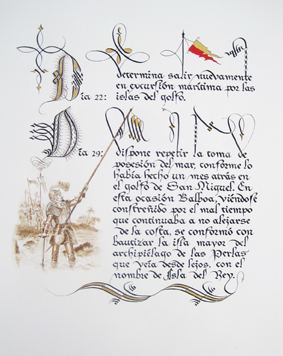 Día 22: determina salir nuevamente
en excursión marítima por las
islas del golfo.
Día 29: dispone repetir la toma de
posesión del mar, conforme lo
había hecho un mes atrás en
el golfo de San Miguel. En
esta ocasión Balboa, viéndose
constreñido por el mal tiempo
que continuaba a no alejarse
de la costa, se conformó con
bautizar la isla mayor del
archipiélago de las Perlas
que veía desde lejos, con el
nombre de Isla del Rey.